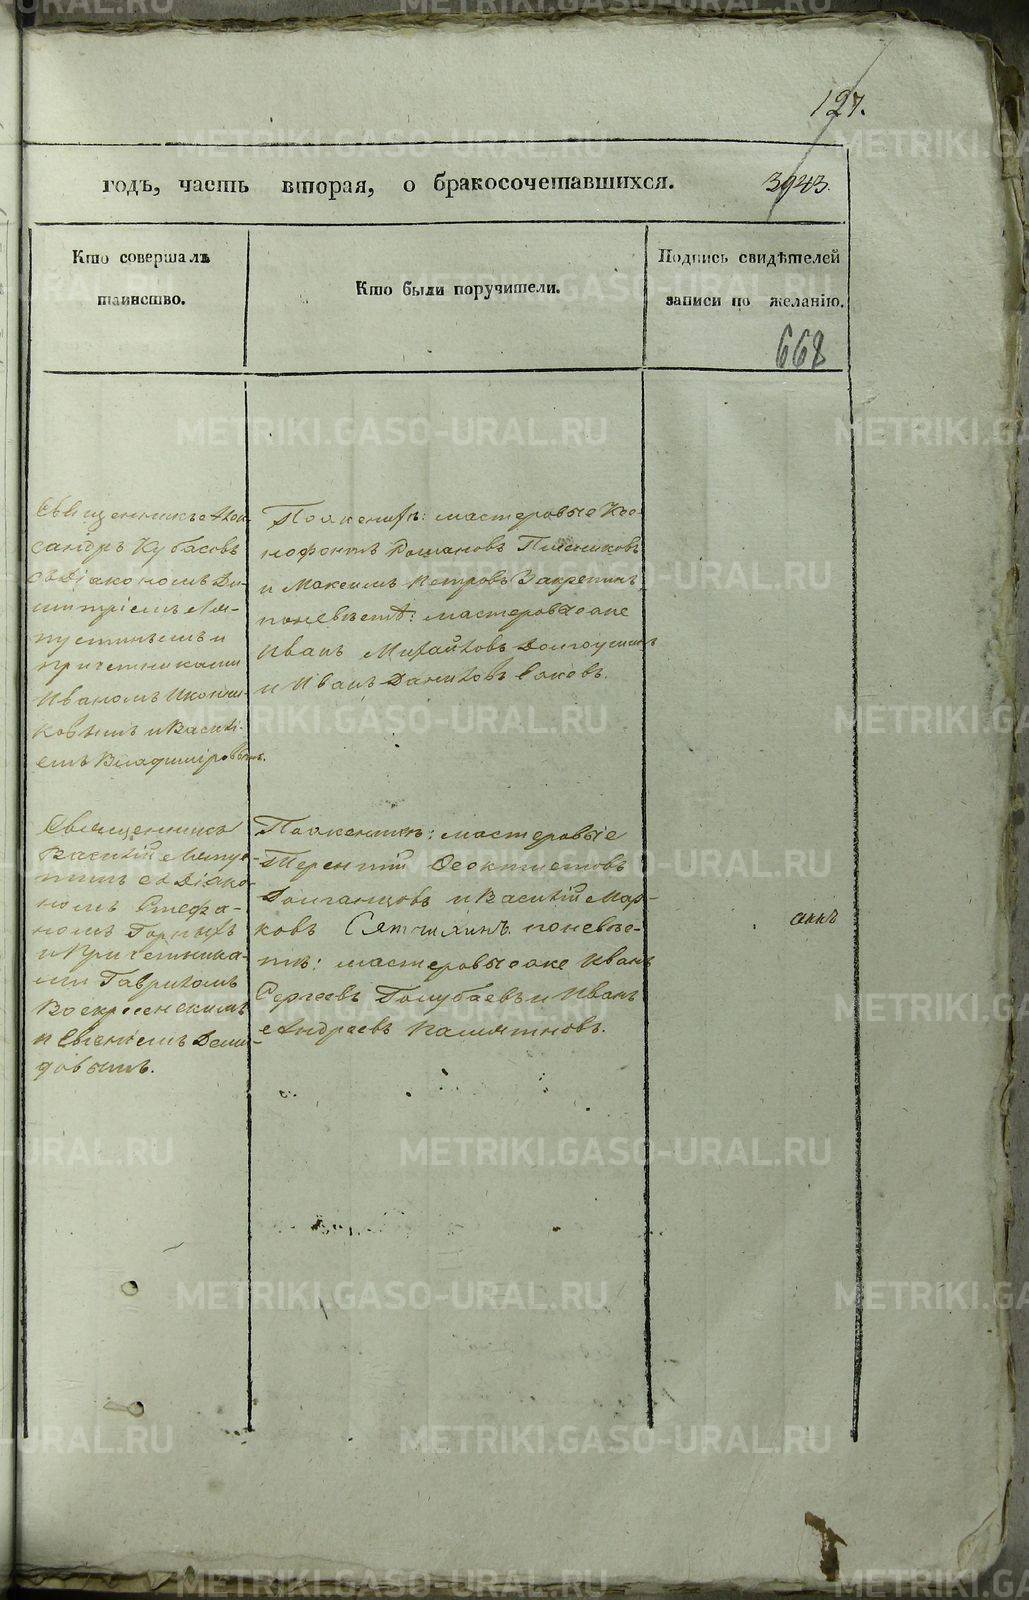 127.
годъ, часть вторая, о бракосочетавшихся. 3943.
Кто совершалъ таинство.
Кто были поручители.
Подпись свидѣтелей записи по желанію.
668
Священникъ Алек-
сандръ Кубасовъ
съ Діакономъ Ди-
митріемъ Ля-
пустинымъ и
причетниками
Иваномъ Иконни-
ковымъ и Васил-
емъ Владиміровымъ.
По женихѣ: мастеровые Ксе-
нофонтъ Романовъ
и Максимъ Петровъ Закрепинъ
по невѣстѣ: мастеровые же
Иванъ Михайловъ Долгоушинъ
и Иванъ Даниловъ
Священникъ
Василій Ляпус-
тинъ съ Діако-
номъ Стефа-
номъ Горныхъ
и Причетника-
ми Гавриломъ
Воскресенскимъ
и Евгеніемъ Деми-
довымъ.
По женихѣ: мастеровые
Терентій Феоктистовъ
Долганцовъ и Василій Мар-
ковъ по невѣс-
тѣ: мастеровые же Иванъ
Сергеевъ Голубаевъ и Иванъ
Андреевъ Памятновъ.
METRIKI.GASO-URAL.RU